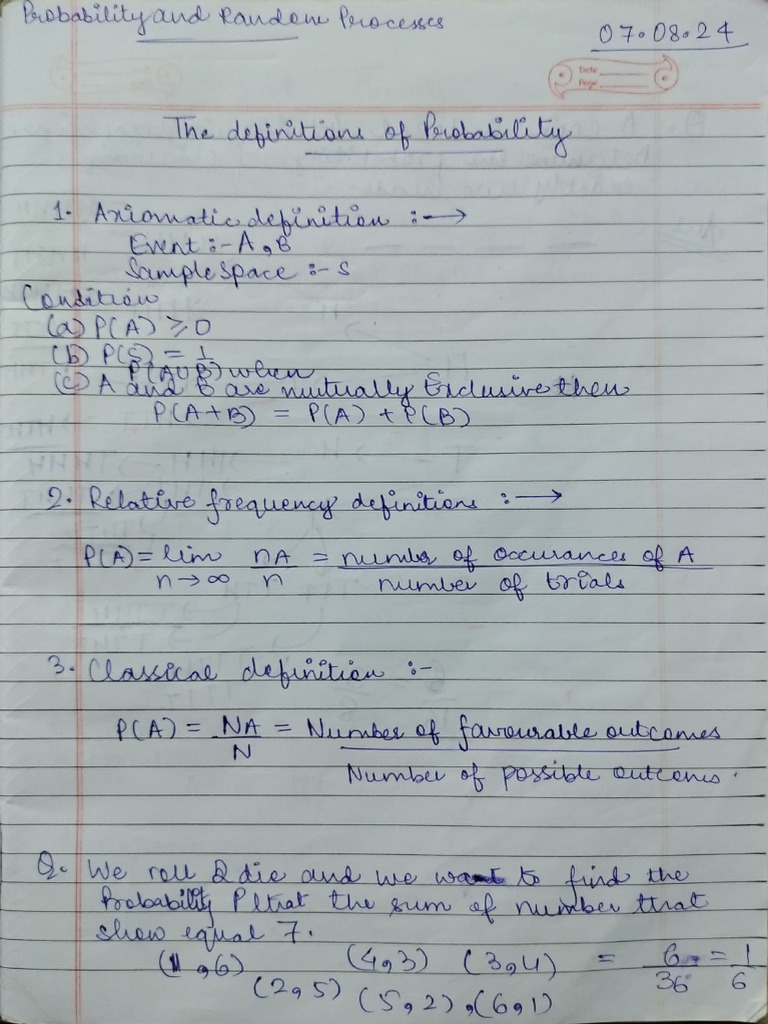 Probability and Random Processes
07.08.24
Date
Page
The definitions of Probability
1. Axiomatic definition :→
Event :- A, B
Sample Space :- S
Condition
(a) P(A) ≥ 0
(b) P(S) = 1
P(A∪B) when
(c) A and B are mutually Exclusive then
P(A+B) = P(A) + P(B)
2. Relative frequency definitions :→
P(A) = lim nA = number of occurances of A
n→∞ n number of trials
3. Classical definition :-
P(A) = NA = Number of favourable outcomes
N
Number of possible outcoms.
Q. We roll 2 die and we want to find the
Probability P that the sum of number that
show equal 7.
(1,6) (4,3) (3,4) = 6 = 1
(2,5) (5,2), (6,1) 36 6